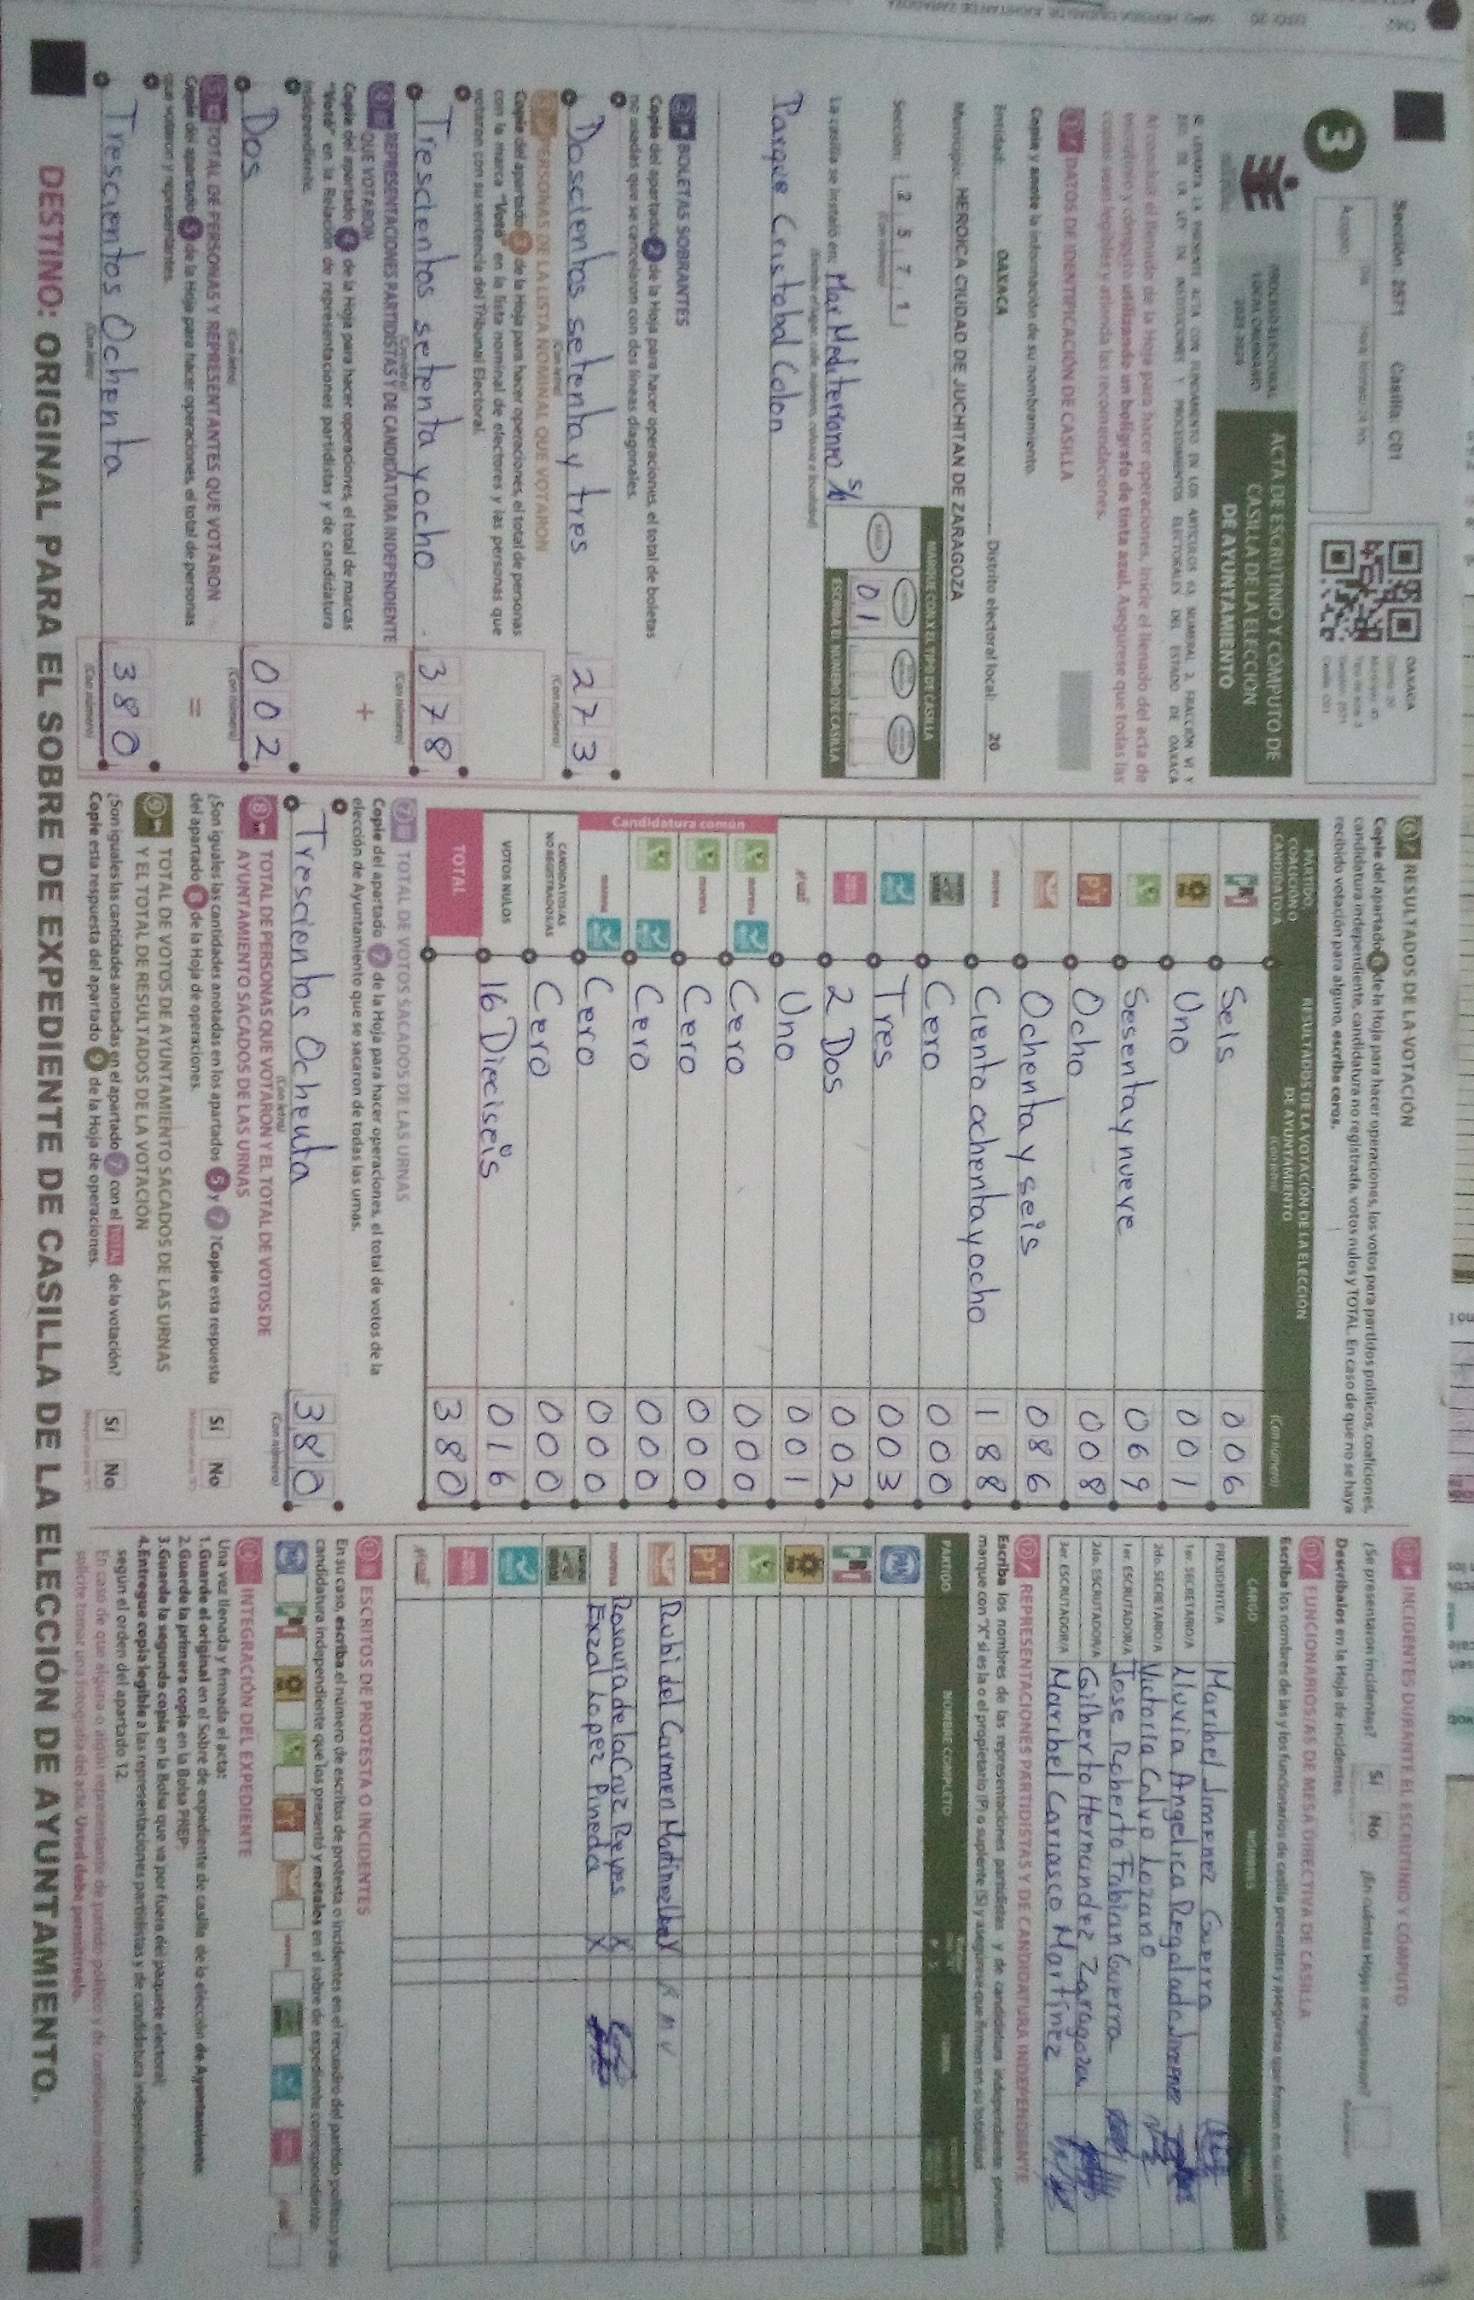 Sección: 2571 Casilla: C01
OAXACA
3
PROCESO ELECTORAL
LOCAL ORDINARIO
2023-2024
ACTA DE ESCRUTINIO Y CÓMPUTO DE
CASILLA DE LA ELECCIÓN
DE AYUNTAMIENTO
SE LEVANTA LA PRESENTE ACTA CON FUNDAMENTO EN LOS ARTÍCULOS 63, NUMERAL 2, FRACCIÓN VI Y
DE LA LEY DE INSTITUCIONES Y PROCEDIMIENTOS ELECTORALES DEL ESTADO DE OAXACA
Al concluir el llenado de la Hoja para hacer operaciones, inicie el llenado del acta de
escrutinio y cómputo utilizando un bolígrafo de tinta azul. Asegúrese que todas las
copias sean legibles y atienda las recomendaciones.
1 DATOS DE IDENTIFICACIÓN DE CASILLA
Copie y anote la información de su nombramiento.
Entidad: OAXACA Distrito electoral local: 20
Municipio: HEROICA CIUDAD DE JUCHITAN DE ZARAGOZA
Sección: 2 5 7 1
(Con número)
MARQUE CON X EL TIPO DE CASILLA
ESCRIBA EL NÚMERO DE CASILLA
01
La casilla se instaló en: Mar Mediterraneo S/N
(Escriba el lugar, calle, número, colonia o localidad)
Parque Cristobal Colon
2 BOLETAS SOBRANTES
Copie del apartado 2 de la Hoja para hacer operaciones, el total de boletas
no usadas que se cancelaron con dos líneas diagonales.
Doscientos setenta y tres 273
(Con letra) (Con número)
3 PERSONAS DE LA LISTA NOMINAL QUE VOTARON
Copie del apartado 3 de la Hoja para hacer operaciones, el total de personas
con la marca "Votó" en la lista nominal de electores y las personas que
votaron con su sentencia del Tribunal Electoral.
Trescientos setenta y ocho 378
(Con letra) (Con número)
4 REPRESENTACIONES PARTIDISTAS Y DE CANDIDATURA INDEPENDIENTE
QUE VOTARON
Copie del apartado 4 de la Hoja para hacer operaciones, el total de marcas
"Votó" en la Relación de representaciones partidistas y de candidatura
independiente.
+
Dos 002
(Con letra) (Con número)
5 TOTAL DE PERSONAS Y REPRESENTANTES QUE VOTARON
Copie del apartado 5 de la Hoja para hacer operaciones, el total de personas
que votaron y representantes.
=
Trescientos Ochenta 380
(Con letra) (Con número)
6 RESULTADOS DE LA VOTACIÓN
Copie del apartado 6 de la Hoja para hacer operaciones, los votos para partidos políticos, coaliciones,
candidatura independiente, candidatura no registrada, votos nulos y TOTAL. En caso de que no se haya
recibido votación para alguno, escriba ceros.
PARTIDO, COALICIÓN O CANDIDATO/A
RESULTADOS DE LA VOTACIÓN DE LA ELECCIÓN DE AYUNTAMIENTO
(Con letra) (Con número)
PRI Seis 006
PRD Uno 001
Sesenta y nueve 069
PT Ocho 008
Ochenta y seis 086
morena Ciento ochenta y ocho 188
Cero 000
Tres 003
2 Dos 002
Uno 001
Candidatura común
morena Cero 000
morena Cero 000
Cero 000
morena Cero 000
CANDIDATOS/AS NO REGISTRADOS/AS Cero 000
VOTOS NULOS 16 Dieciseis 016
TOTAL 380
7 TOTAL DE VOTOS SACADOS DE LAS URNAS
Copie del apartado 7 de la Hoja para hacer operaciones, el total de votos de la
elección de Ayuntamiento que se sacaron de todas las urnas.
Trescientos Ochenta 380
(Con letra) (Con número)
8 TOTAL DE PERSONAS QUE VOTARON Y EL TOTAL DE VOTOS DE
AYUNTAMIENTO SACADOS DE LAS URNAS
¿Son iguales las cantidades anotadas en los apartados 5 y 7? Copie esta respuesta
del apartado 8 de la Hoja de operaciones.
Sí No
9 TOTAL DE VOTOS DE AYUNTAMIENTO SACADOS DE LAS URNAS
Y EL TOTAL DE RESULTADOS DE LA VOTACIÓN
¿Son iguales las cantidades anotadas en el apartado 7 con el TOTAL de la votación?
Copie esta respuesta del apartado 9 de la Hoja de operaciones.
Sí No
10 INCIDENTES DURANTE EL ESCRUTINIO Y CÓMPUTO
¿Se presentaron incidentes? Sí No ¿En cuántas Hojas se registraron?
Descríbalos en la Hoja de incidentes.
11 FUNCIONARIOS/AS DE MESA DIRECTIVA DE CASILLA
Escriba los nombres de las y los funcionarios de casilla presentes y asegúrese que firmen en su totalidad.
CARGO NOMBRES
PRESIDENTE/A Maribel Jimenez Guerra
1er. SECRETARIO/A Lluvia Angelica Regalado Jimenez
2do. SECRETARIO/A Victoria Calvo Lozano
1er. ESCRUTADOR/A Jose Roberto Fabian Guerra
2do. ESCRUTADOR/A Gilberto Hernandez Zaragoza
3er. ESCRUTADOR/A Maribel Carrasco Martinez
12 REPRESENTACIONES PARTIDISTAS Y DE CANDIDATURA INDEPENDIENTE
Escriba los nombres de las representaciones partidistas y de candidatura independiente presentes,
marque con "X" si es la o el propietario (P) o suplente (S) y asegúrese que firmen en su totalidad.
PARTIDO NOMBRE COMPLETO
PAN
PRI
PRD
PT
Rubi del Carmen Martinez X R M V
morena Rosaura de la Cruz Reyes X
Exzal Lopez Pineda X
13 ESCRITOS DE PROTESTA O INCIDENTES
En su caso, escriba el número de escritos de protesta o incidentes en el recuadro del partido político y/o de
candidatura independiente que los presentó y métalos en el sobre de expediente correspondiente.
14 INTEGRACIÓN DEL EXPEDIENTE
Una vez llenada y firmada el acta:
1. Guarde el original en el Sobre de expediente de casilla de la elección de Ayuntamiento.
2. Guarde la primera copia en la Bolsa PREP.
3. Guarde la segunda copia en la Bolsa que va por fuera del paquete electoral.
4. Entregue copia legible a las representaciones partidistas y de candidatura independiente presentes,
según el orden del apartado 12.
DESTINO: ORIGINAL PARA EL SOBRE DE EXPEDIENTE DE CASILLA DE LA ELECCIÓN DE AYUNTAMIENTO.